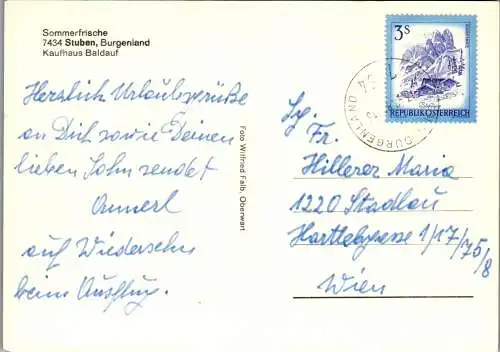 Sommerfrische
7434 Stuben, Burgenland
Kaufhaus Baldauf
Herzlich Urlaubsgrüße
an Dich sowie Deinen
lieben Sohn sendet
Annerl
auf Wiedersehn
beim Ausflug.
Foto Wilfried Falb, Oberwart
3S
REPUBLIK ÖSTERREICH
BURGENLAND
Fr.
Hillerer Maria
1220 Stadlau
Hartlebgasse 1/17/75/8
Wien